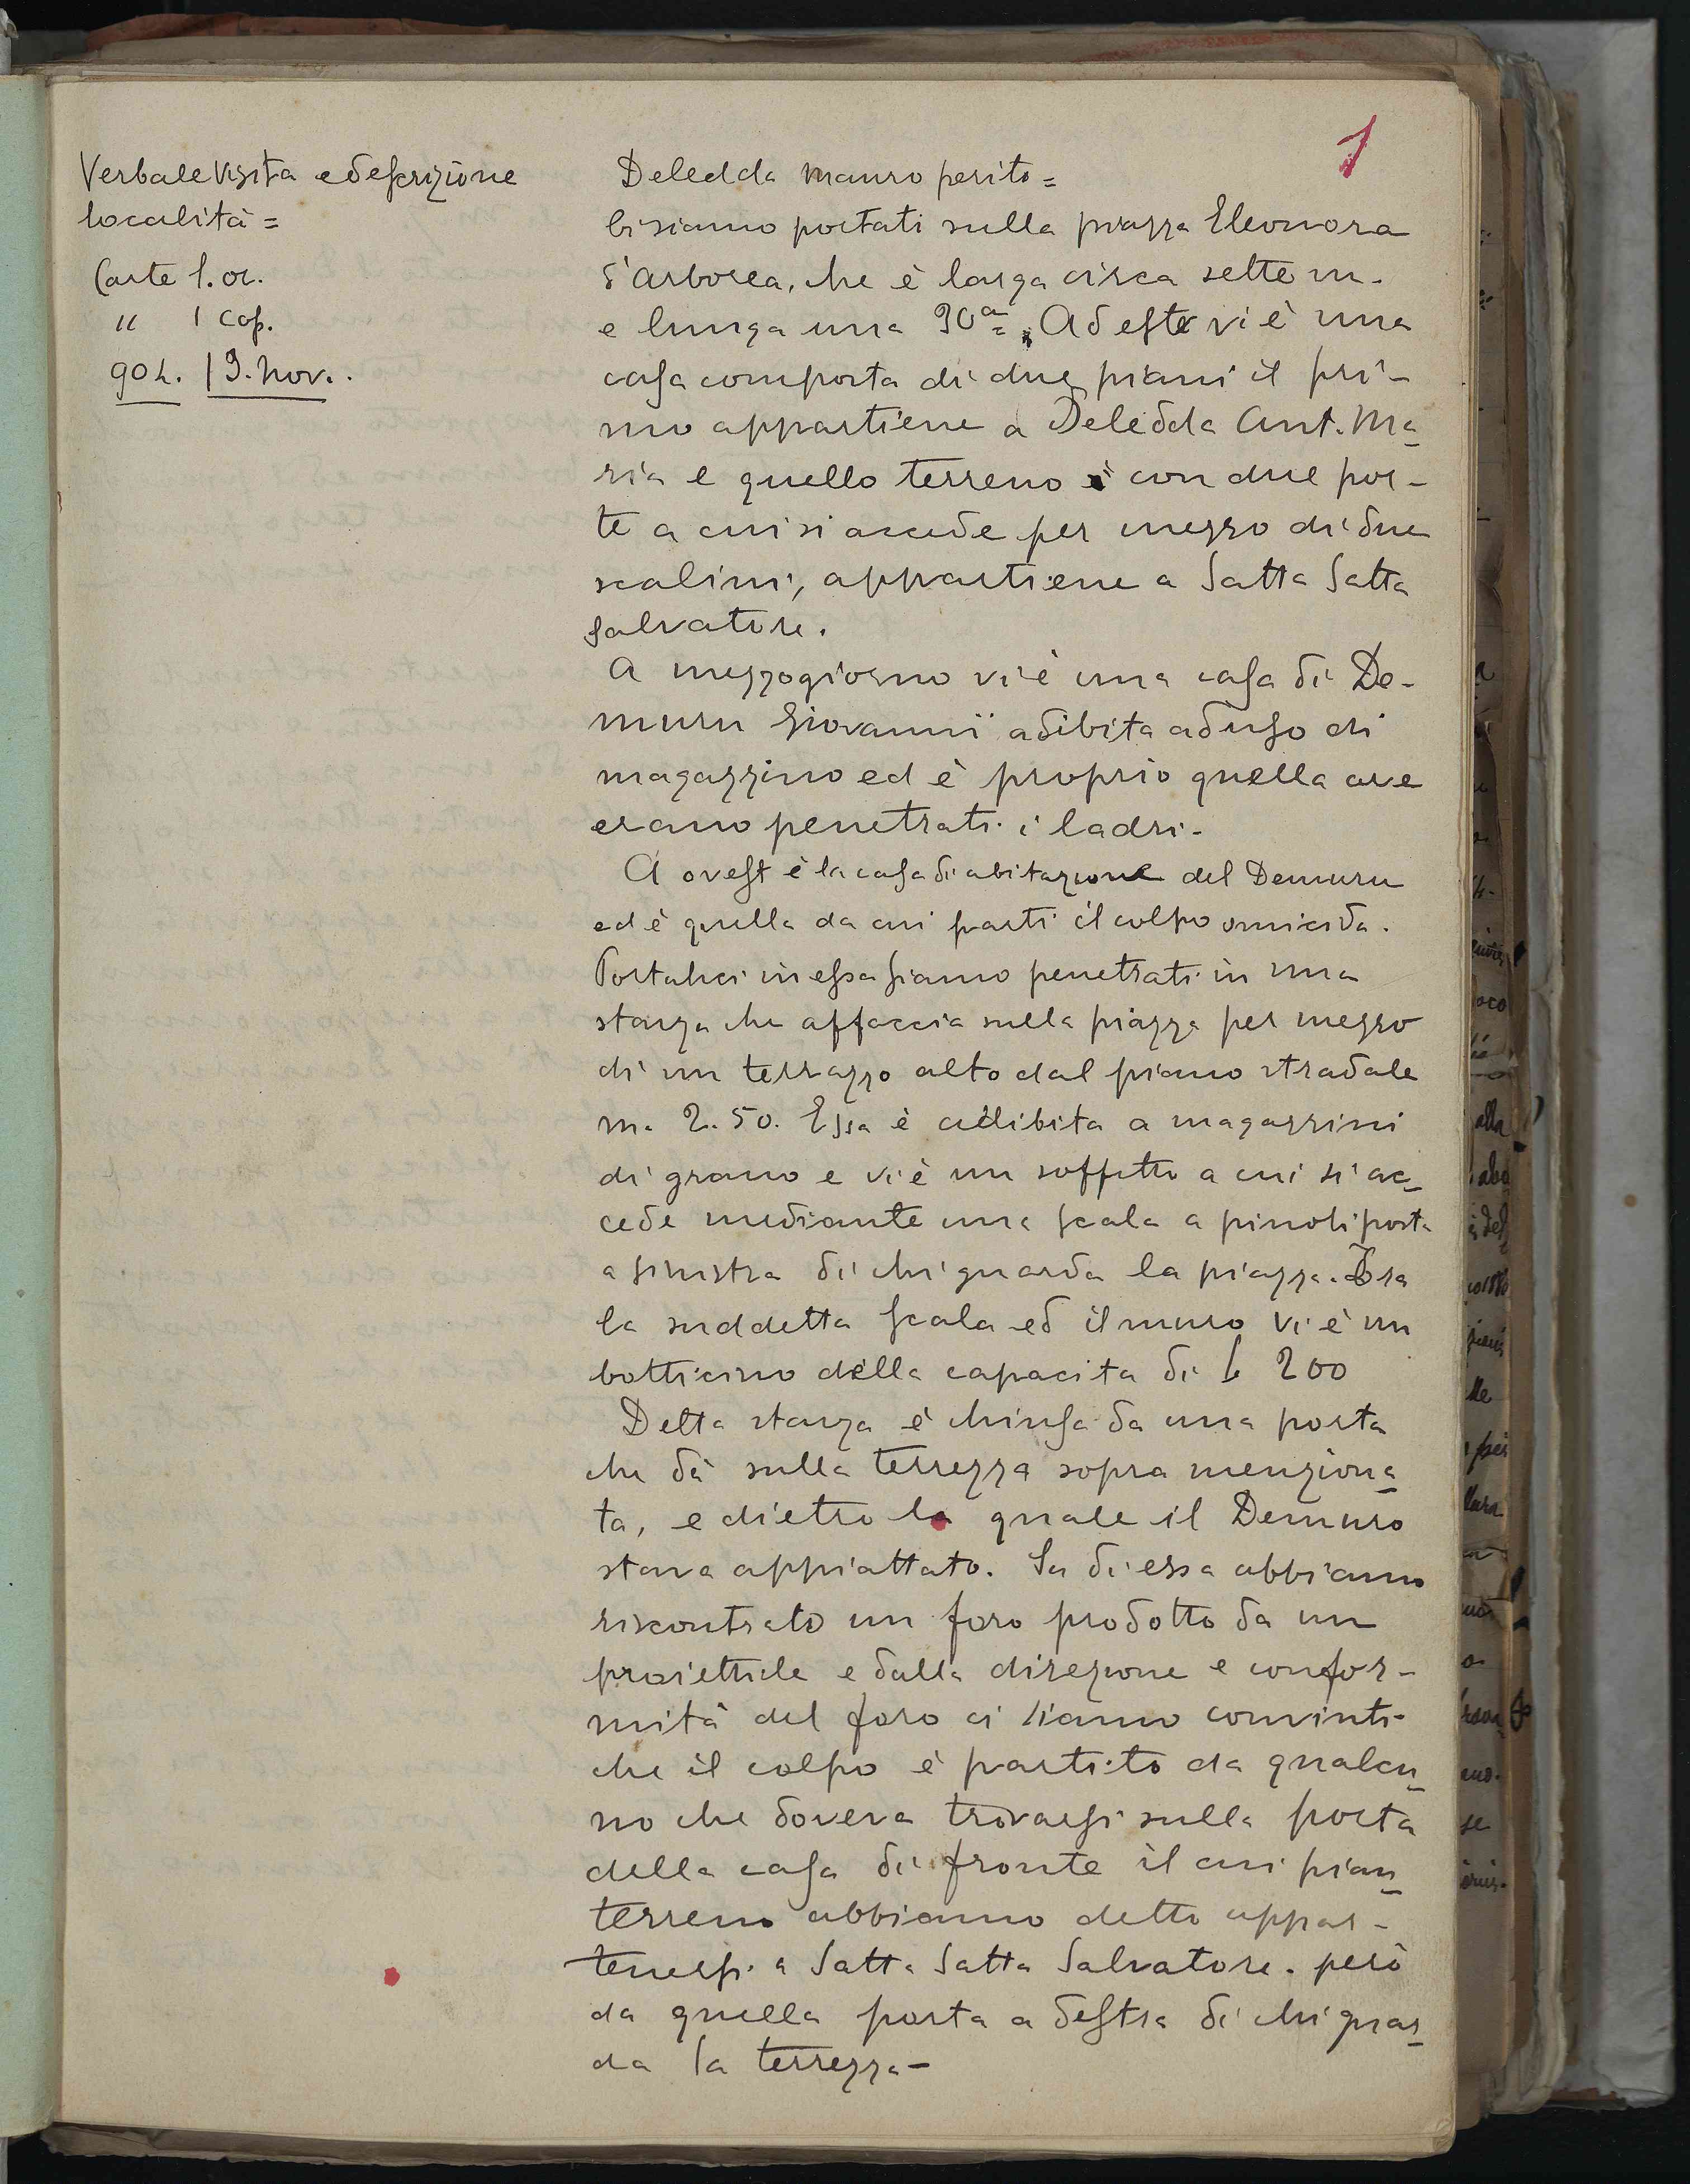 1
Verbale visita e descrizione
località =
Carte 1. or.
" 1 cop.
904. 19. nov..
Deledda Mauro perito =
Ci siamo portati sulla piazza Eleonora
d'Arborea, che è larga circa sette m.
e lunga una 30ª =. Ad este vi è una
casa composta di due piani il pri-
mo appartiene a Deledda Ant. Ma-
ria e quello terreno è con due por-
te a cui si accede per mezzo di due
scalini, appartiene a Satta Satta
Salvatore.
A mezzogiorno vi è una casa di De-
muru Giovanni adibita ad uso di
magazzino ed è proprio quella ove
erano penetrati i ladri.
A ovest è la casa di abitazione del Demuru
ed è quella da cui partì il colpo omicida.
Portatici in essa siamo penetrati in una
stanza che affaccia sulla piazza per mezzo
di un terrazzo alto dal piano stradale
m. 2.50. Essa è adibita a magazzini
di grano e vi è un soffitto a cui si ac-
cede mediante una scala a pinoli posta
a sinistra di chi guarda la piazza. Tra
la suddetta scala ed il muro vi è un
botticino della capacita di L 200
Detta stanza è chiusa da una porta
che dà sulla terrezza sopra menziona-
ta, e dietro la quale il Demuro
stava appiattato. Su di essa abbiamo
riscontrato un foro prodotto da un
proiettile e dalla direzione e confor-
mità del foro ci siamo convinti
che il colpo è partito da qualcu-
no che doveva trovarsi sulla porta
della casa di fronte il cui pian-
terreno abbiamo detto appar-
tenersi a Satta Satta Salvatore. però
da quella porta a destra di chi guar-
da la terrezza -